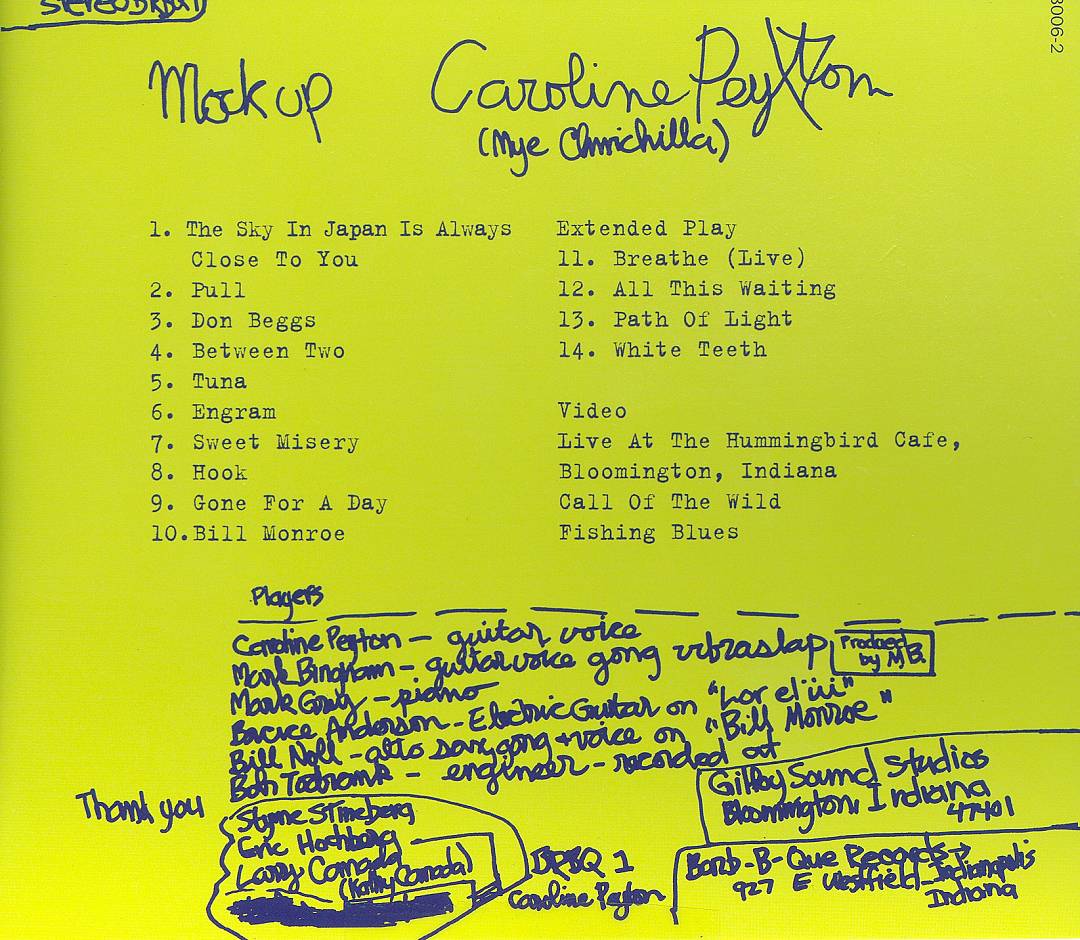 3006-2
Mock up Caroline Peyton
(Mye Chinichilla)
1. The Sky In Japan Is Always
Close To You
2. Pull
3. Don Beggs
4. Between Two
5. Tuna
6. Engram
7. Sweet Misery
8. Hook
9. Gone For A Day
10.Bill Monroe
Extended Play
11. Breathe (Live)
12. All This Waiting
13. Path Of Light
14. White Teeth
Video
Live At The Hummingbird Cafe,
Bloomington, Indiana
Call Of The Wild
Fishing Blues
Players
Caroline Peyton - guitar voice
Mark Bingham - guitar voice gong vibraslap
Produced
by MB.
Mark Gray - piano
Bruce Anderson - Electric Guitar on "Lor el iii"
Bill Noll - alto sax, gong + voice on "Bill Monroe"
Bob - engineer - recorded at
Gilfoy Sound Studios
Bloomington, Indiana
47401
Thank you
Eric Hochberg
Larry Canada
(Kathy Canada)
BRBQ 1
Caroline Peyton
Barb-B-Que Records →
927 E Westfield - Indianapolis
Indiana